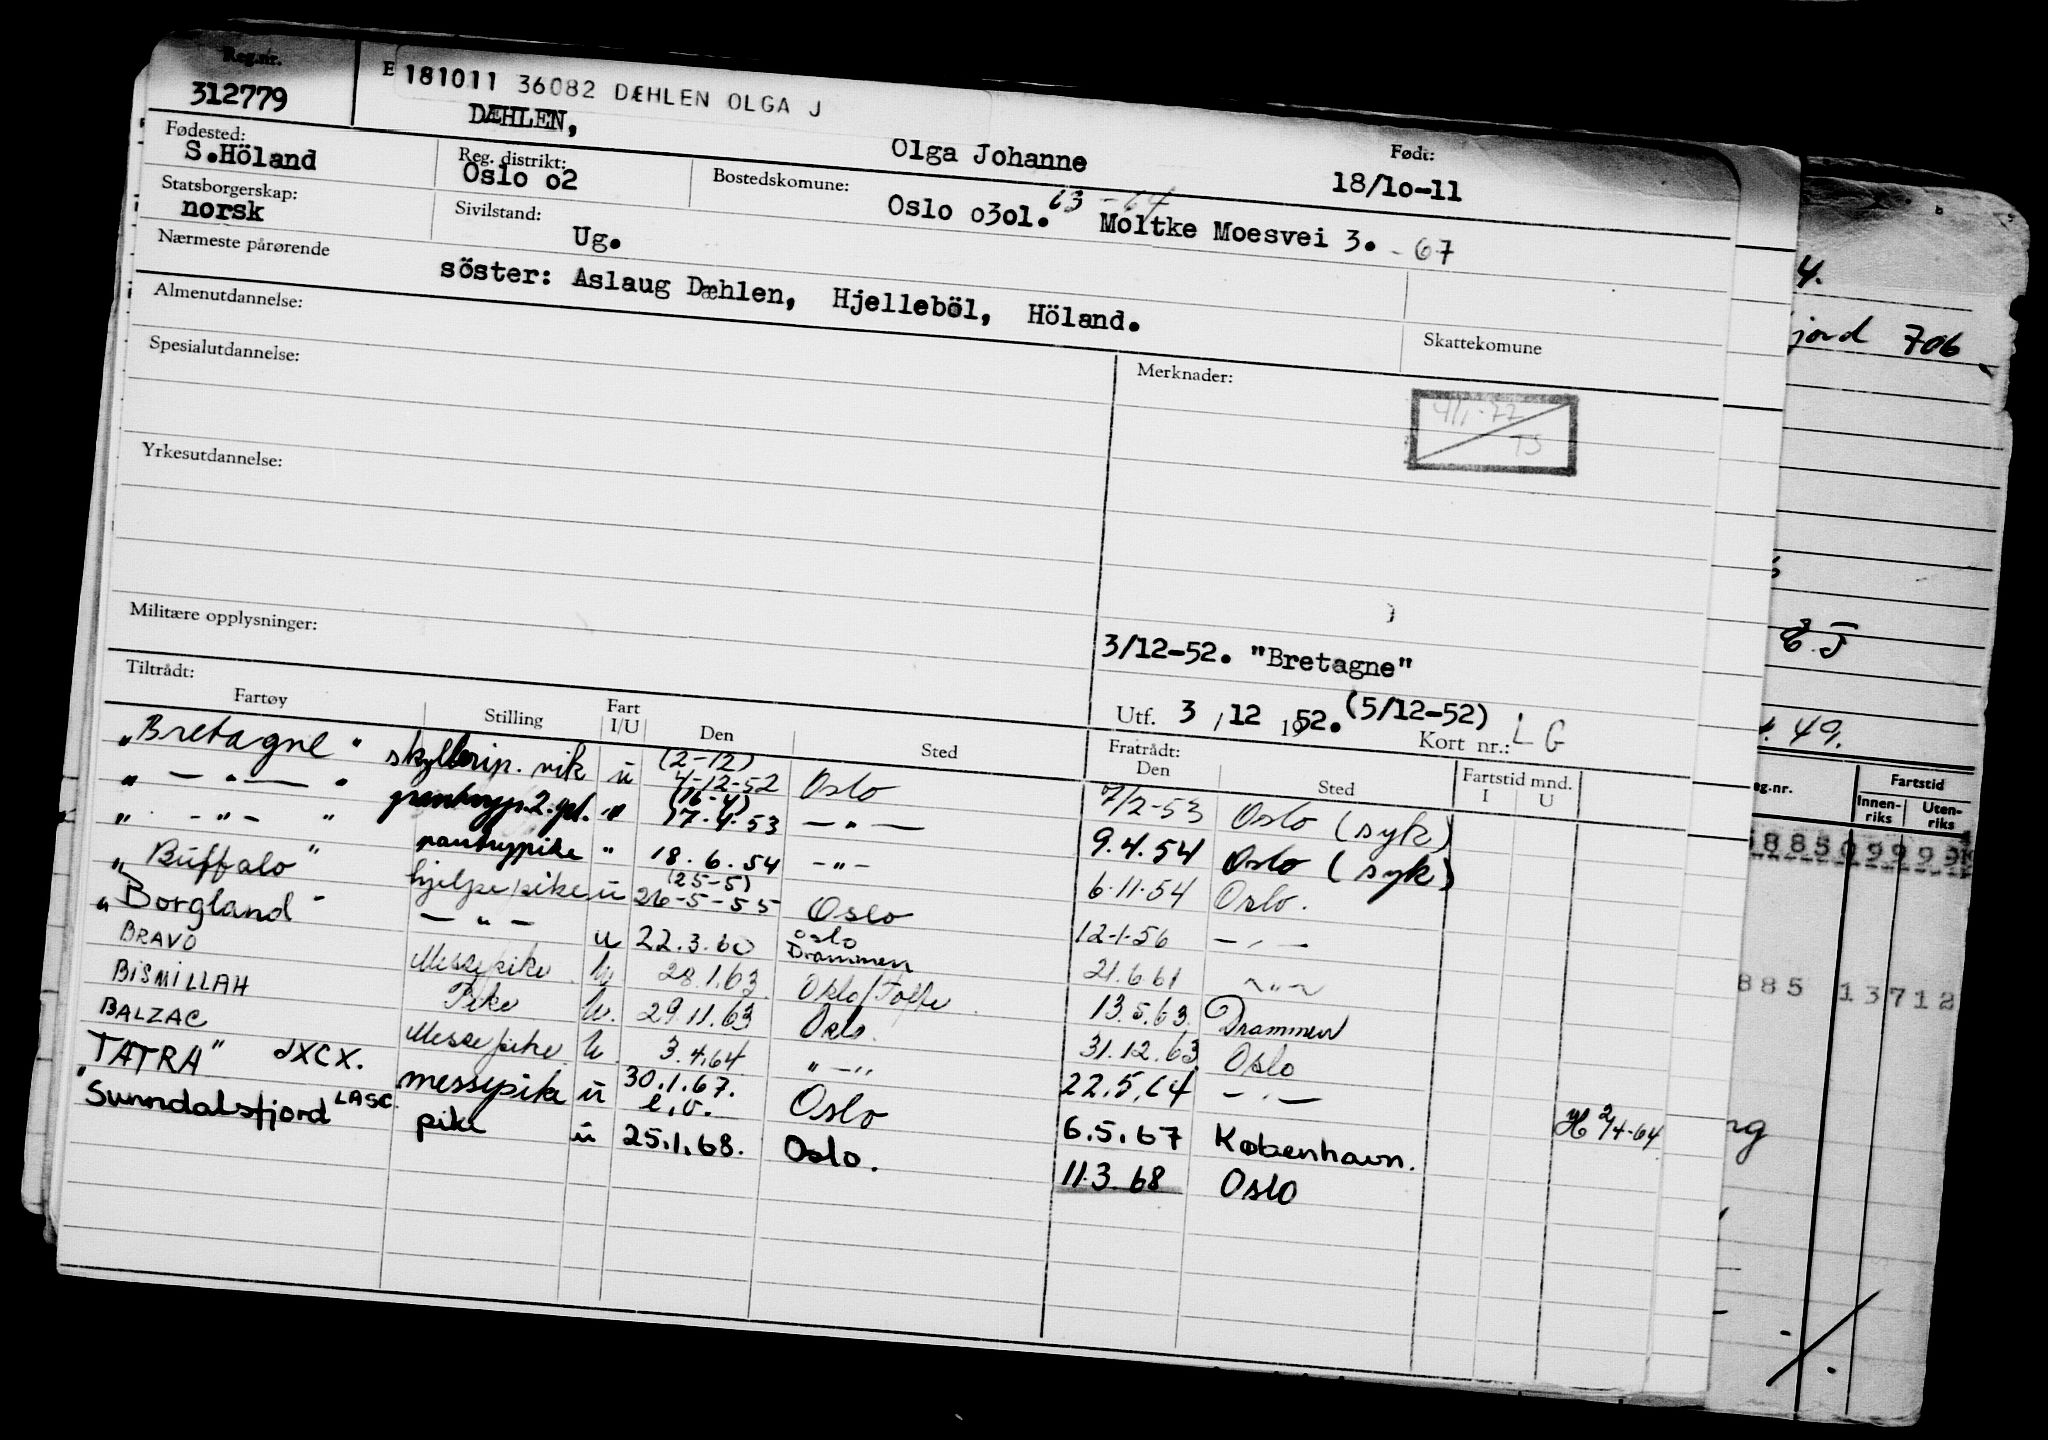 Reg.nr.
312779
E 181011 36082 DÆHLEN OLGA J
DÆHLEN, Olga Johanne
Født: 18/10-11
Fødested: S.Höland
Reg. distrikt: Oslo o2
Bostedskomune: Oslo o3ol. 63 - 64 Moltke Moesvei 3. - 67
Statsborgerskap: norsk
Sivilstand: Ug.
Nærmeste pårørende
söster: Aslaug Dæhlen, Hjelleböl, Höland.
Almenutdannelse:
Skattekomune
Spesialutdannelse:
Merknader:
4/1-72
TS
Yrkesutdannelse:
Militære opplysninger:
3/12-52. "Bretagne"
Utf. 3 / 12 1952. (5/12-52)
Kort nr.: L G
Tiltrådt:
Fartøy Stilling Fart I/U Den Sted Fratrådt: Den Sted Fartstid mnd. I U
"Bretagne" skyllerip. vik u (2-12) 4-12-52 Oslo 7/2-53 Oslo (syk)
" — " — " pantryp. 2. gel. " (16-4) 17.4.53 — " — 9.4.54 Oslo (syk)
" - " - " pantrypike " 18.6.54 - " - 6.11.54 Oslo.
"Buffalo" hjelpepike u (25-5) 26-5-55 Oslo 12-1-56 — " —
"Borgland" — " — u 22.3.60 Oslo Drammen 21.6.61 ~ " ~
BRAVO Messepike u 28.1.63 Oslo/Tofte 13.5.63. Drammen
BISMILLAH Pike u. 29.11.63 Oslo. 31.12.63 Oslo
BALZAC Messepike u. 3.4.64 " — " 22.5.64 — " —
H 2/4-64
"TATRA" JXCX. messepike u 30.1.67. e.v. Oslo 6.5.67 København.
"Sunndalsfjord LASC. pike u 25.1.68. Oslo. 11.3.68 Oslo
4.
jord 706
E.J
49.
g.nr.
Fartstid
Innen-riks Uten-riks
885 13712